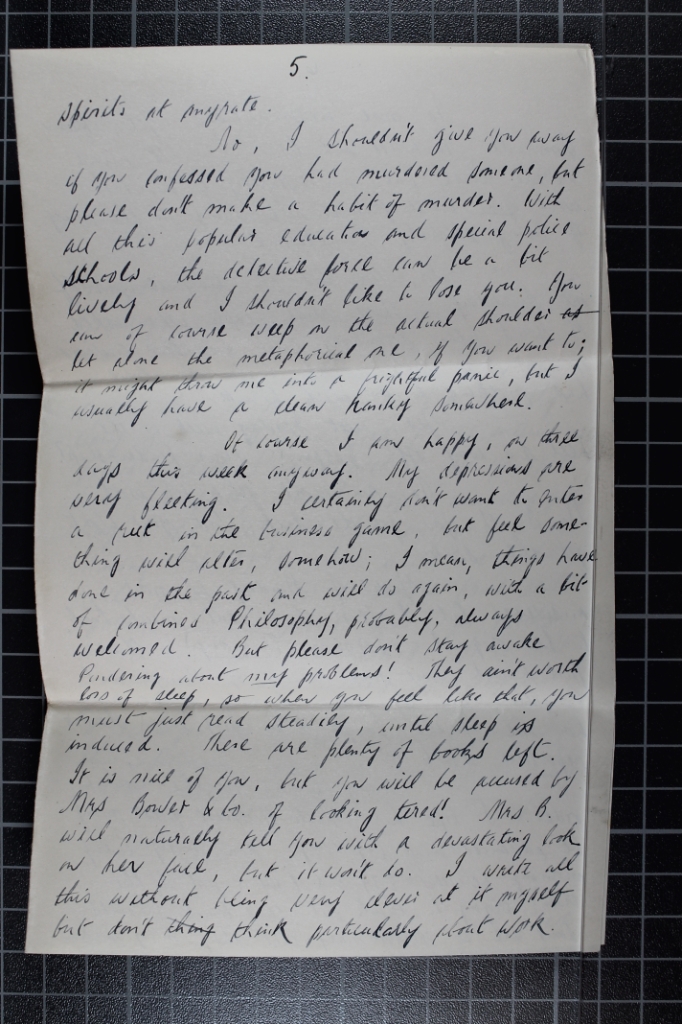 5.
spirits at anyrate.
No, I shouldn't give you away
if you confessed you had murdered someone, but
please don't make a habit of murder. With
all this popular education and special police
schools, the detective force can be a bit
lively and I shouldn't like to lose you. You
can of course weep on the actual shoulder as
let alone the metaphorical one, if you want to;
it might throw me into a frightful panic, but I
usually have a clean hanky somewhere.
Of course I am happy, on three
days this week anyway. My depressions are
very fleeting. I certainly don't want to enter
a rut in the business game, but feel some-
thing will alter, somehow; I mean, things have
done in the past and will do again, with a bit
of combined Philosophy, probably, always
welcomed. But please don't stay awake
Pondering about my problems! They ain't worth
loss of sleep, so when you feel like that, you
must just read steadily, until sleep is
induced. There are plenty of books left.
It is nice of you, but you will be accused by
Mrs Bower & Co. of looking tired! Mrs B.
will naturally tell you with a devastating look
on her face, but it won't do. I write all
this without being very clever at it myself
but don't thing think particularly about work.